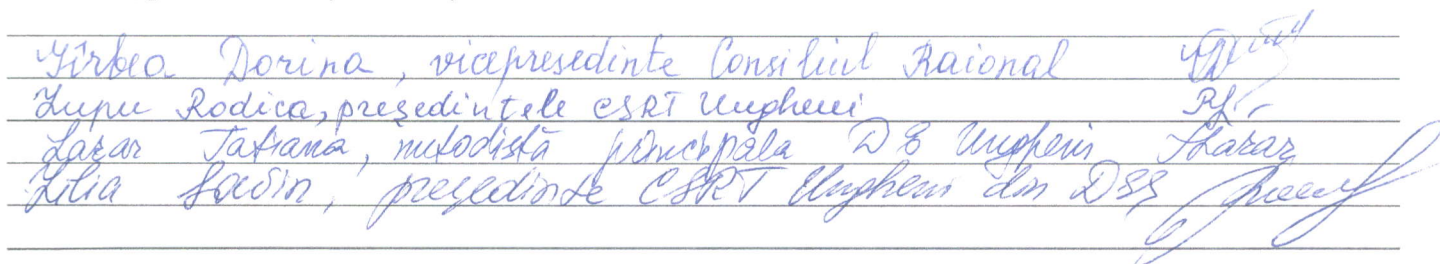 Gîrbea Dorina, vicepreședinte Consiliul Raional
Lupu Rodica, președintele CSRT Ungheni
Lazar Tatiana, metodistă principală DE Ungheni TLazar
Lilia președinte CSRT Ungheni din DSS